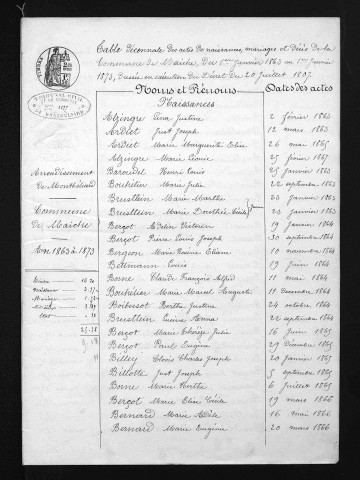 Table Décennale des actes de naissances, mariages et décès de la
Commune de Maiche, Du 1er Janvier 1863 au 1er Janvier
1873, Dressée en exécution du Décret du 20 Juillet 1807.
Noms et Prénoms
Dates des actes
Naissances
Arrondissement
De Montbéliard
Commune
de Maîche
An 1863 à 1873
Alzingre Justine 2 février 1863
Ardiet Just Joseph 12 mars 1863
Ardiet Marie Marguerite Elise 26 mai 1865
Alzingre Marie Léonie 25 février 1867
Henri Louis 25 janvier 1863
Boichelier Marie Julie 22 septembre 1863
Brusttein Marie Marthe 23 janvier 1863
Brusttein Marie Dorothée Cécile 23 janvier 1863
Bergot Victorien 19 janvier 1864
Bergot Pierre Louis Joseph 30 septembre 1864
Marie Eliane 10 novembre 1864
Bittmann Louis 19 janvier 1864
Borne Claude François Alfred 11 mai 1864
Boichelier Marie Marcel Auguste 11 Décembre 1864
Boibessot Berthe Justine 24 octobre 1864
Brusttein Anna 22 septembre 1864
Bergot Marie Thérèse Julie 16 Juin 1865
Bergot Paul Eugène 29 Décembre 1865
Billey Charles Joseph 20 Janvier 1865
Billotte Just Joseph 5 septembre 1865
Borne Marie Berthe 6 Juillet 1865
Bergot Marie Elise Cécile 19 mars 1866
Bernard Marie Adèle 16 mai 1866
Bernard Marie Eugénie 20 mars 1866